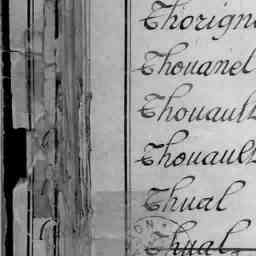 Thorign
Thouanel
Thouault
Thouault
Thual
Thual